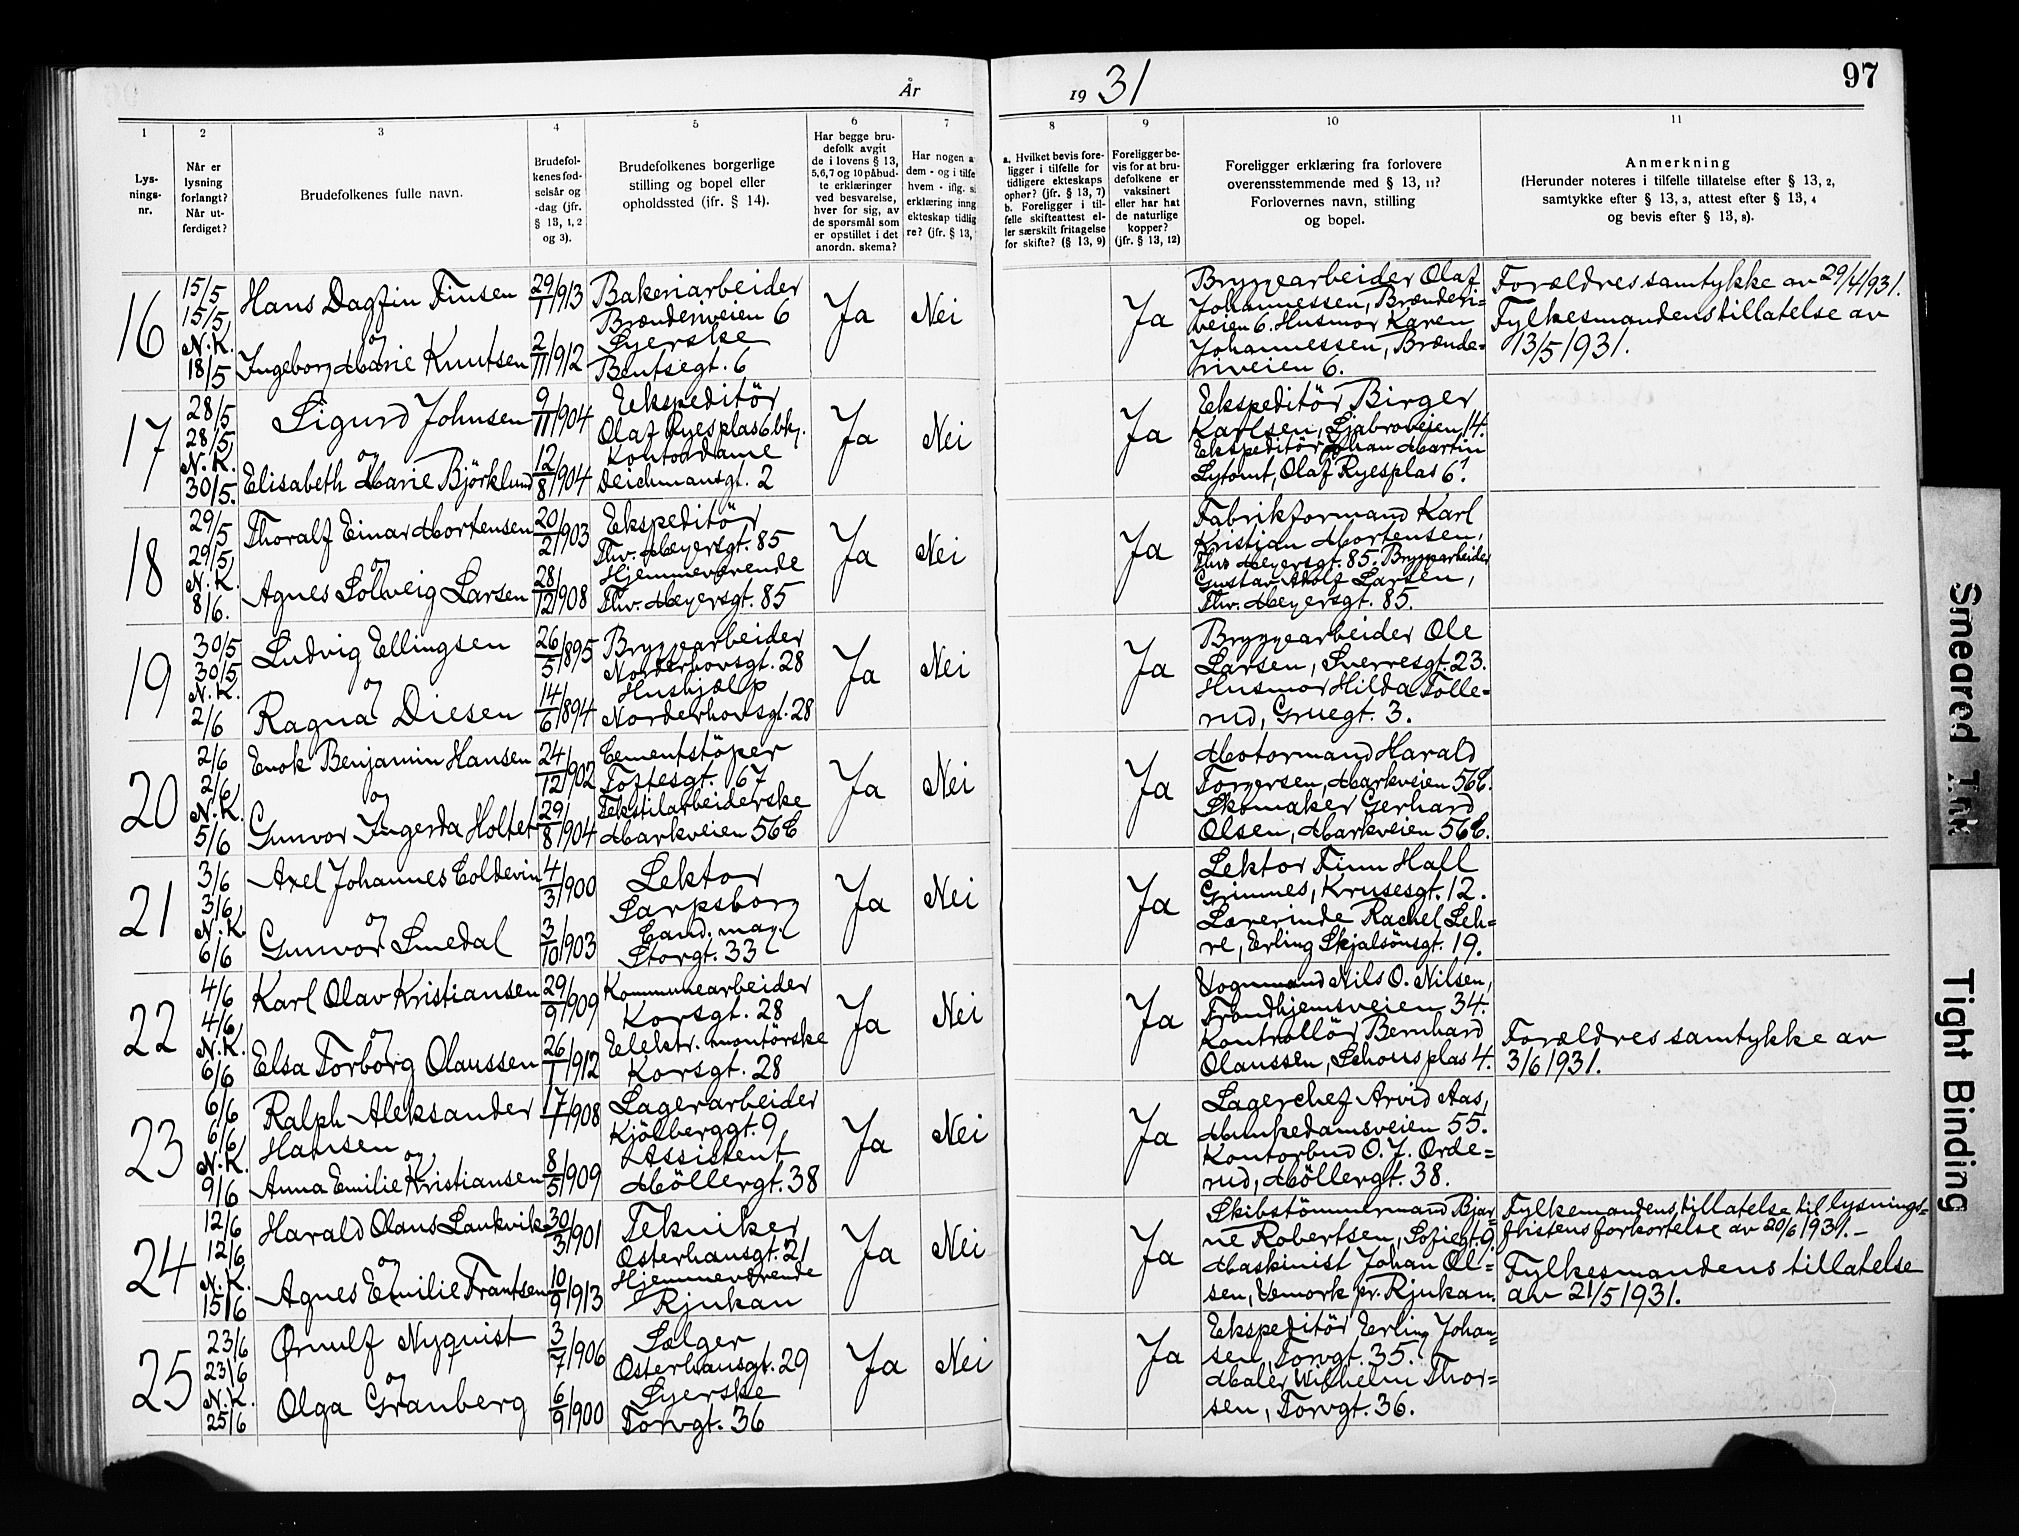 År 1931
97
1
2
3
4
5
6
7
8
9
10
11
Lys-
nings-
nr.
Når er
lysning
forlangt?
Når ut-
ferdiget?
Brudefolkenes fulle navn.
Brudefol-
kenes fød-
selsår og
-dag (jfr.
§ 13, 1, 2
og 3).
Brudefolkenes borgerlige
stilling og bopel eller
opholdssted (jfr. § 14).
Har begge bru-
defolk avgit
de i lovens § 13,
5,6,7 og 10 påbud-
te erklæringer
ved besvarelse,
hver for sig, av
de spørsmål som
er opstillet i det
anordn. skema?
Har nogen a
dem - og i tilfe
hvem - iflg. si
erklæring inng
ekteskap tidlig
re? (jfr. § 13,
a. Hvilket bevis fore-
ligger i tilfelle for
tidligere ekteskaps
ophør? (jfr. § 13, 7)
b. Foreligger i til-
felle skifteattest el-
ler særskilt fritagelse
for skifte? (§ 13, 9)
Foreligger be-
vis for at bru-
defolkene er
vaksinert
eller har hat
de naturlige
kopper?
(jfr. § 13, 12)
Foreligger erklæring fra forlovere
overensstemmende med § 13, 11?
Forlovernes navn, stilling
og bopel.
Anmerkning
(Herunder noteres i tilfelle tillatelse efter § 13, 2,
samtykke efter § 13, 3, attest efter § 13, 4
og bevis efter § 13, 8).
16
15/5
15/5
N.K.
18/5
Hans Dagfin Finsen
og
Ingeborg Marie Knutsen
29/1 1913
2/11 1912
Bakeriarbeider
Brænderiveien 6
Syerske
Bentsegt. 6
Ja
Nei
Ja
Bryggearbeider Olaf
Johannessen, Brænderi-
veien 6. Husmor Karen
Johannessen, Brænde-
riveien 6.
Forældres samtykke av 29/4 1931.
Fylkesmandens tillatelse av
13/5 1931.
17
28/5
28/5
N.K.
30/5.
Sigurd Johnsen
og
Elisabeth Marie Björklund
9/11 1904
12/8 1904
Ekspeditör
Olaf Ryesplas 6 bkg.
Kontordame
Deichmansgt. 2
Ja
Nei
Ja
Ekspeditör Birger
Karlsen, Ljabroveien 14.
Ekspeditör Johan Martin
Lytomt, Olaf Ryesplas 6!
18
29/5
29/5
N.K.
8/6.
Thoralf Einar Mortensen
og
Agnes Solveig Larsen
20/2 1903
28/12 1908
Ekspeditör
Thv. Meyersgt. 85
Hjemmeværende
Thv. Meyersgt. 85
Ja
Nei
Ja
Fabrikformand Karl
Kristian Mortensen,
Thv. Meyersgt. 85. Bryggearbeider
Gustav Adolf Larsen,
Thv. Meyersgt. 85.
19
30/5
30/5
N.K.
2/6
Ludvig Ellingsen
og
Ragna Diesen
26/5 1895
14/6 1894
Bryggearbeider
Norderhovsgt. 28
Hushjælp
Norderhovsgt. 28
Ja
Nei
Ja
Bryggearbeider Ole
Larsen, Sverresgt. 23.
Husmor Hilda Tolle-
rud, Gruegt. 3.
20
2/6
2/6
N.K.
5/6
Enok Benjamin Hansen
og
Gunvor Ingerda Holtet
24/12 1902
29/8 1904
Cementstöper
Toftesgt. 67
Tekstilarbeiderske
Markveien 56 C
Ja
Nei
Ja
Motormand Harald
Torgersen, Markveien 56 C.
Skomaker Gerhard
Olsen, Markveien 56 C.
21
3/6
3/6
N.K.
6/6
Axel Johannes Coldevin
og
Gunvor Smedal
4/3 1900
3/10 1903
Lektor
Sarpsborg
Cand. mag.
Storgt. 33
Ja
Nei
Ja
Lektor Finn Hall
Grimnes, Krusesgt. 12.
Lærerinde Rachel Leh-
re, Erling Skjalsönsgt. 19.
22
4/6
4/6
N.K.
6/6
Karl Olav Kristiansen
og
Elsa Torborg Olaussen
29/9 1909
26/1 1912
Kommunearbeider
Korsgt. 28
Elektr. montörske
Korsgt. 28
Ja
Nei
Ja
Vognmand Nils O. Nilsen,
Trondhjemsveien 34.
Kontrollör Bernhard
Olaussen, Schous plas 4.
Forældres samtykke av
3/6 1931.
23
6/6
6/6
N.K.
9/6
Ralph Aleksander
Hansen
og
Anna Emilie Kristiansen
17/7 1908
8/5 1909
Lagerarbeider
Kjölberggt. 9
Assistent
Möllergt. 38
Ja
Nei
Ja
Lagerchef Arvid Aas,
Munkedamsveien 55.
Kontorbud O. J. Orde-
rud, Möllergt. 38.
24
12/6
12/6
N.K.
15/6
Harald Olaus Lankvik
og
Agnes Emilie Frantsen
30/3 1901
10/9 1913
Tekniker
Osterhausgt. 21
Hjemmeværende
Rjukan
Ja
Nei
Ja
Skibstömmermand Bjar-
ne Robertsen, Sofiegt. 9.
Maskinist Johan Ol-
sen, Vemork pr. Rjukan.
Fylkemandens tillatelse til lysnings-
fristens forkortelse av 20/6 1931.-
Fylkesmandens tillatelse
av 21/5 1931.
25
23/6
23/6
N.K.
25/6
Ørnulf Nyquist
og
Olga Granberg
3/7 1906
6/9 1900
Sælger
Osterhausgt. 29
Syerske
Torvgt. 36
Ja
Nei
Ja
Ekspeditör Erling Johan-
sen, Torvgt. 35.
Maler Wilhelm Thor-
sen, Torvgt. 36.
Smeared Ink
Tight Binding